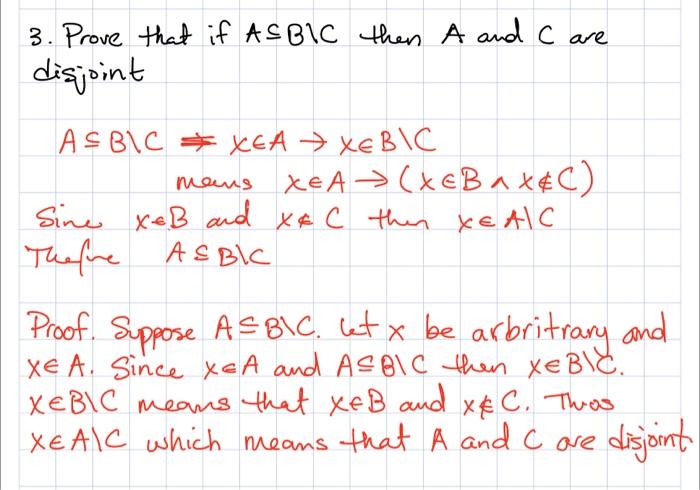 3. Prove that if A⊆B\C then A and C are
disjoint
A⊆B\C x∈A → x∈B\C
means x∈A → (x∈B ∧ x∉C)
Sine x∈B and x∉C then x∈A\C
Thefre A⊆B\C
Proof. Suppose A⊆B\C. Let x be arbritrary and
x∈A. Since x∈A and A⊆B\C then x∈B\C.
x∈B\C means that x∈B and x∉C. Thus
x∈A\C which means that A and C are disjoint